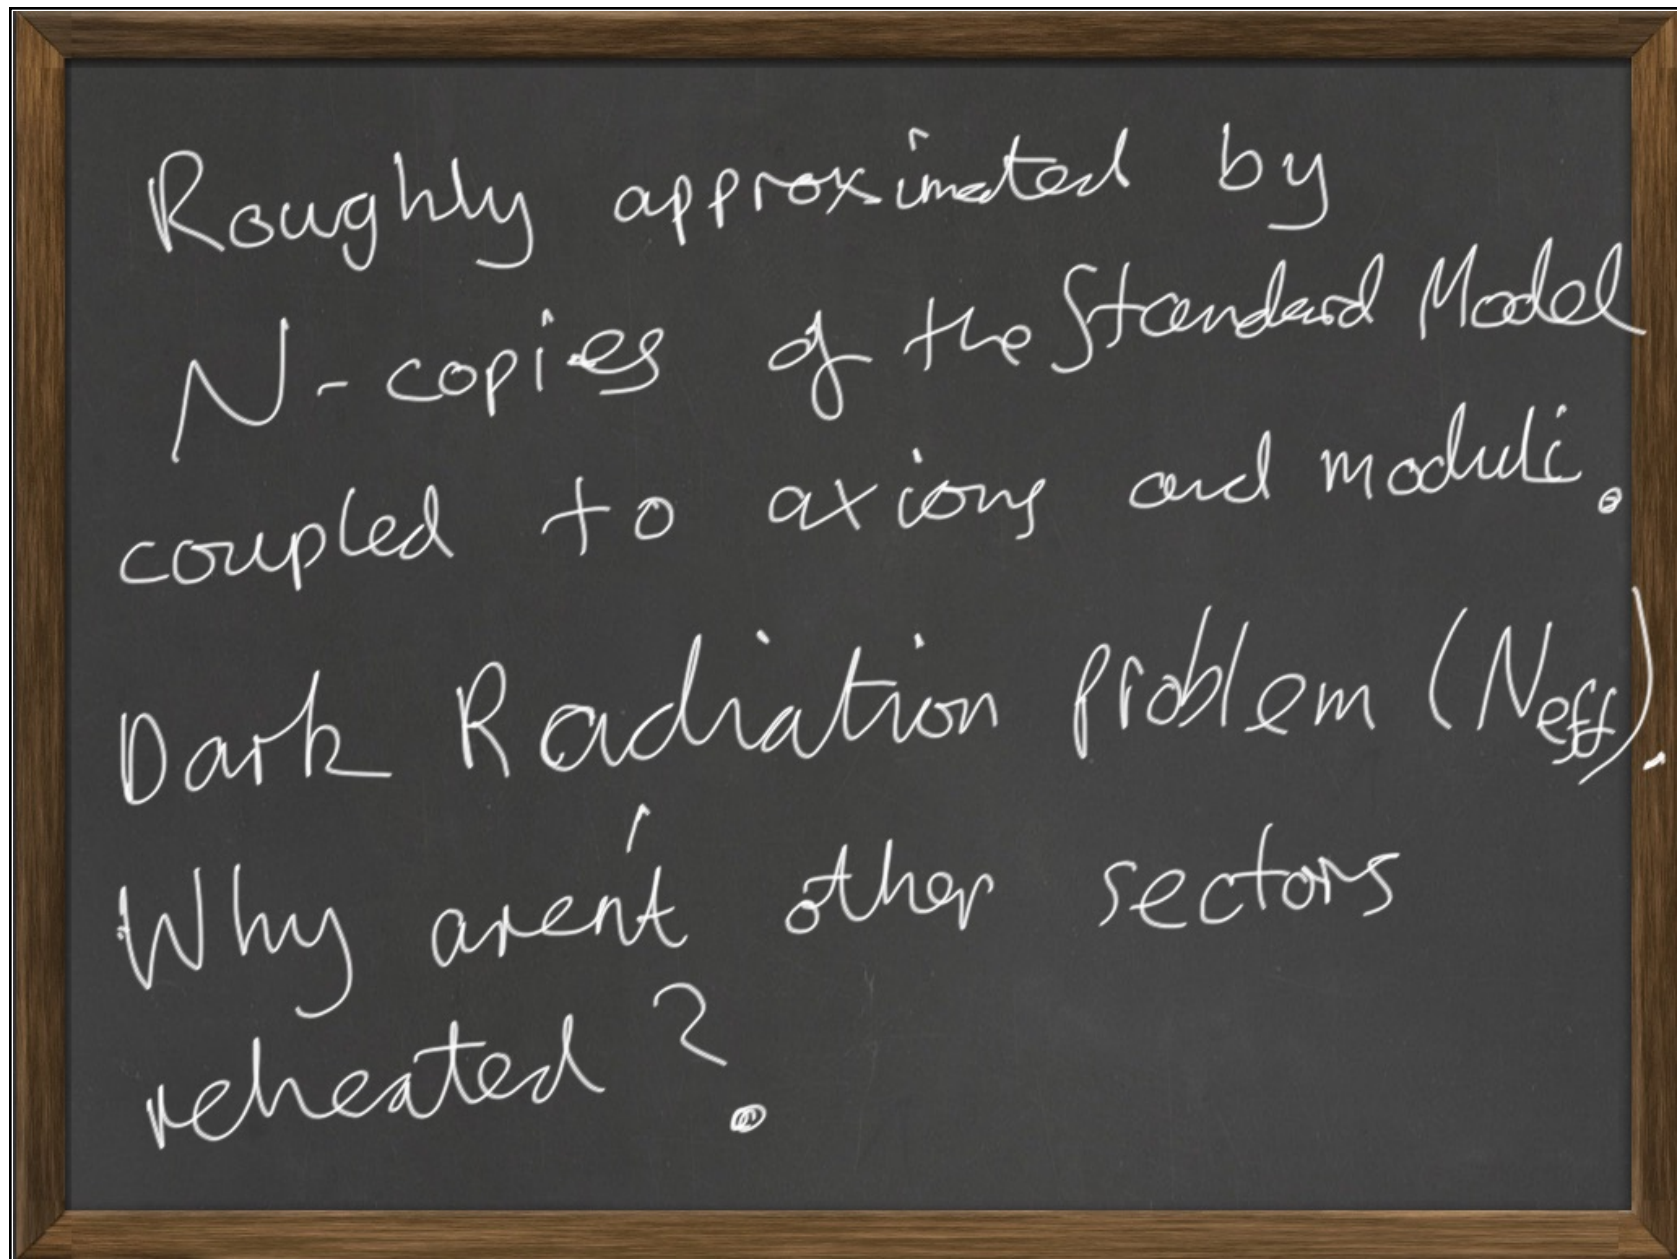 Roughly approximated by
N-copies of the Standard Model
coupled to axions and moduli.
Dark Radiation problem (Neff).
Why aren't other sectors
reheated?